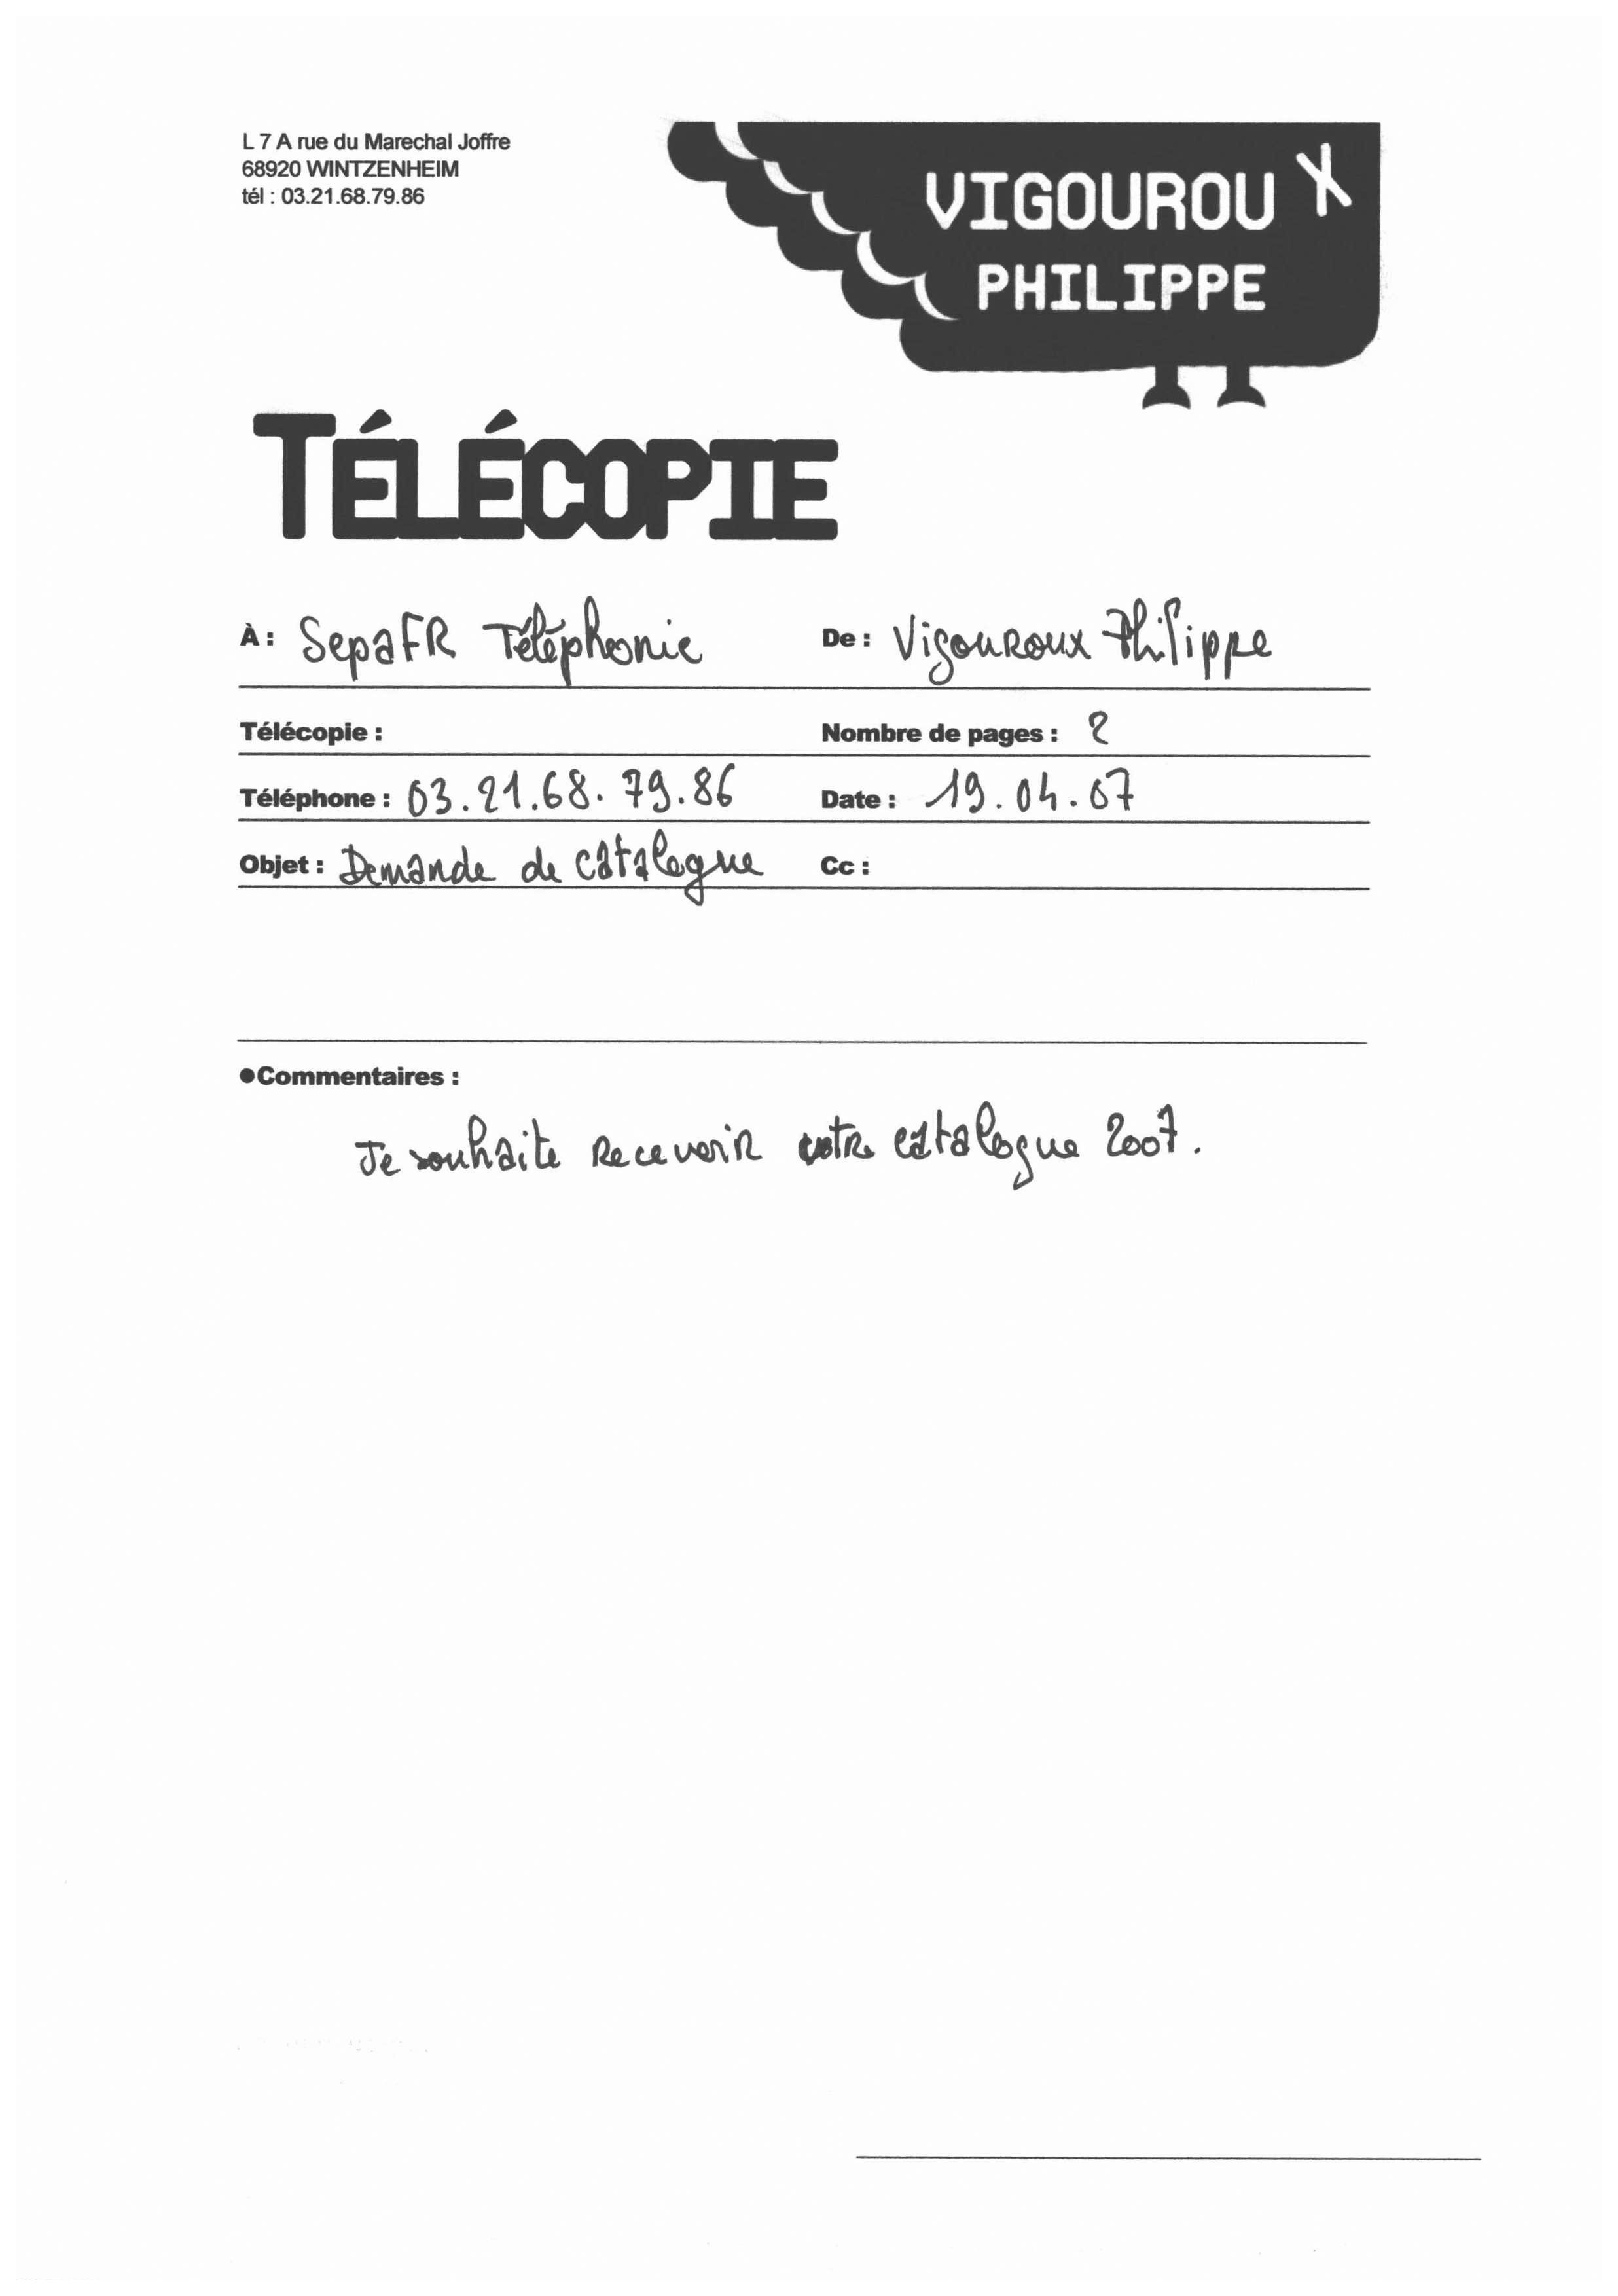 L 7 A rue du Marechal Joffre
68920 WINTZENHEIM
tél : 03.21.68.79.86
VIGOUROUX
PHILIPPE
TÉLÉCOPIE
À : SepaFR Téléphonie De : Vigouroux Philippe
Télécopie : Nombre de pages : 2
Téléphone : 03.21.68.79.86 Date : 19.04.07
Objet : Demande de catalogue Cc :
●Commentaires :
Je souhaite recevoir votre catalogue 2007.